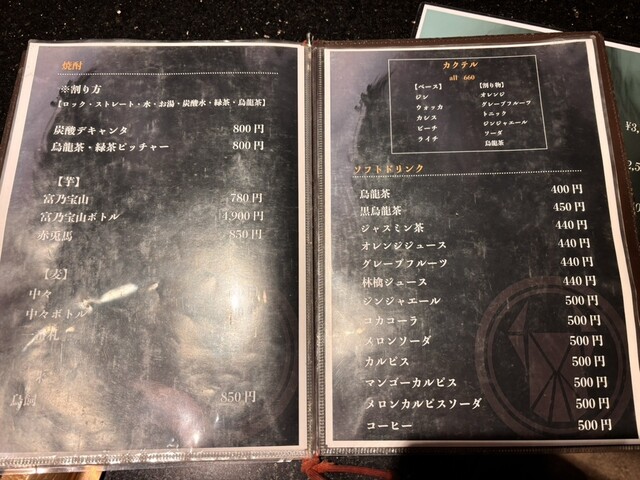 焼酎
※割り方
【ロック・ストレート・水・お湯・炭酸水・緑茶・烏龍茶】
炭酸デキャンタ 800円
烏龍茶・緑茶ピッチャー 800円
【芋】
富乃宝山 780円
富乃宝山ボトル 4,900円
赤兎馬 850円
【麦】
中々
中々ボトル
850円
カクテル
all 660
【ベース】 【割り物】
ジン オレンジ
ウォッカ グレープフルーツ
カシス トニック
ピーチ ジンジャエール
ライチ ソーダ
烏龍茶
ソフトドリンク
烏龍茶 400円
黒烏龍茶 450円
ジャスミン茶 440円
オレンジジュース 440円
グレープフルーツ 440円
林檎ジュース 440円
ジンジャエール 500円
コカコーラ 500円
メロンソーダ 500円
カルピス 500円
マンゴーカルピス 500円
メロンカルピスソーダ 500円
コーヒー 500円